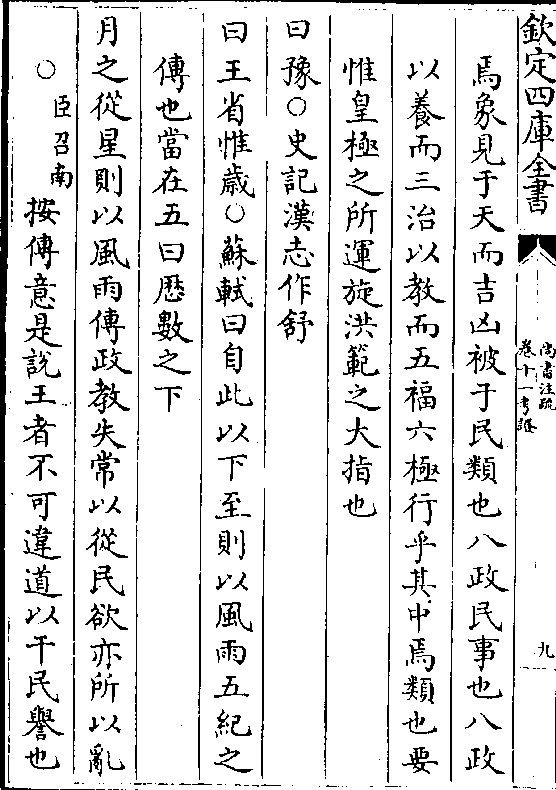 欽定四庫全書
尚書注疏
卷十一考證
九
焉象見于天而吉凶被于民類也八政民事也八政
以養而三治以教而五福六極行乎其中焉類也要
惟皇極之所運旋洪範之大指也
曰豫○史記漢志作舒
曰王省惟歲○蘇軾曰自此以下至則以風雨五紀之
傳也當在五曰歷數之下
月之從星則以風雨傳政教失常以從民欲亦所以亂
○臣召南按傳意是說王者不可違道以干民譽也